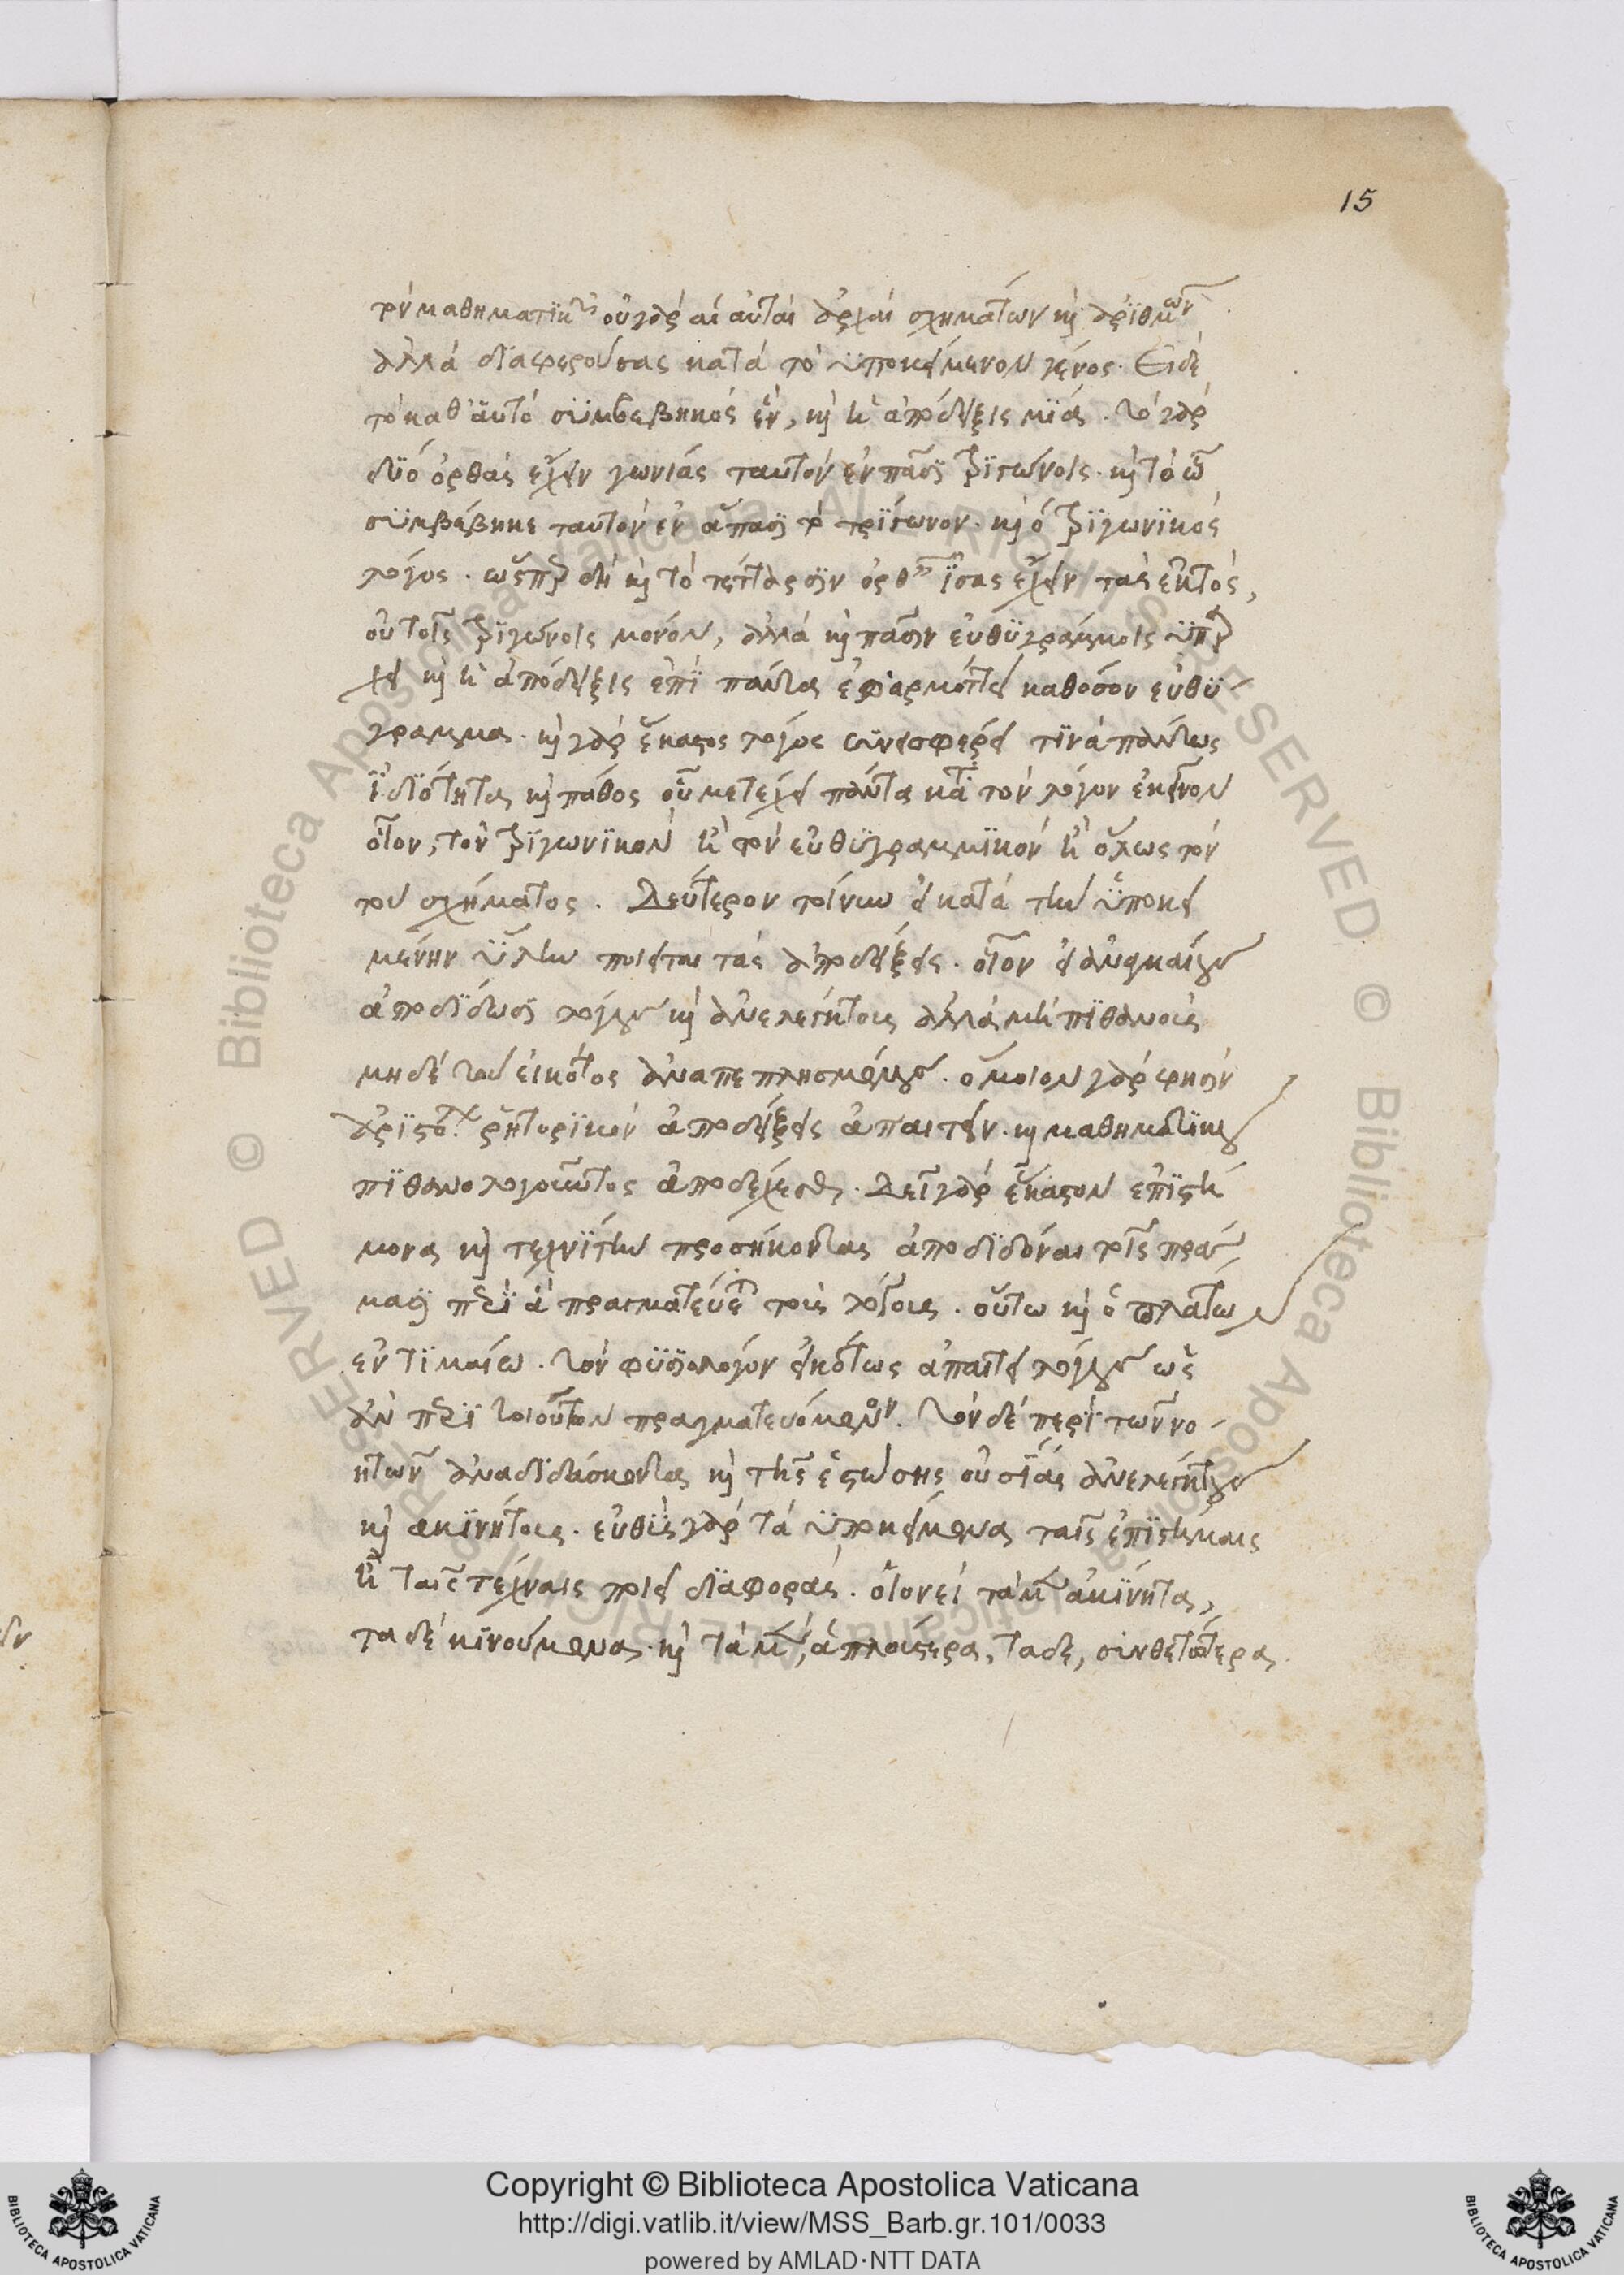 15
τὸν μαθηματικὸν οὐ γὰρ αἱ αὐταὶ ἀρχαὶ σχημάτων καὶ ἀριθμῶν
ἀλλὰ διαφερούσας κατὰ τὸ ὑποκείμενον γένος. Εἰ δὲ
τὸ καθ' αὑτὸ συμβεβηκὸς ἓν, καὶ ἡ ἀπόδειξις μία. τὸ γὰρ
δύο ὀρθὰς ἔχειν γωνίας ταυτὸν ἐν πᾶσι τριγώνοις. καὶ τὸ ᾧ
συμβέβηκε ταυτὸν ἐν ἅπασι τὸ τρίγωνον. καὶ ὁ τριγωνικὸς
λόγος. ὥσπερ δὴ καὶ τὸ τέτταρσιν ὀρθαῖς ἴσας ἔχειν τὰς ἐκτὸς,
οὐ τοῖς τριγώνοις μόνον, ἀλλὰ καὶ πᾶσιν εὐθυγράμμοις ὑπάρ
χει καὶ ἡ ἀπόδειξις ἐπὶ πάντα ἐφαρμόττει καθόσον εὐθύ
γραμμα. καὶ γὰρ ἕκαστος λόγος συνεισφέρει τινὰ πάντως
ἰδιότητα καὶ πάθος οὗ μετέχει πάντα κατὰ τὸν λόγον ἐκεῖνον
οἷον, τὸν τριγωνικὸν ἢ τὸν εὐθυγραμμικὸν ἢ ὅλως τὸν
τοῦ σχήματος. Δεύτερον τοίνυν εἰ κατὰ τὴν ὑποκει
μένην ὕλην ποιεῖται τὰς ἀποδείξεις. οἷον εἰ ἀναγκαίους
ἀποδίδωσι λόγους καὶ ἀνελέγκτους ἀλλὰ μὴ πιθανοὺς
μηδὲ τοῦ εἰκότος ἀναπεπλησμένους. ὅμοιον γὰρ φησὶν
ἀριστοτέλης ῥητορικὸν ἀποδείξεις ἀπαιτεῖν. καὶ μαθηματικοῦ
πιθανολογοῦντος ἀποδέχεσθαι. Δεῖ γὰρ ἕκαστον ἐπιστή
μονα καὶ τεχνίτην προσήκοντας ἀποδιδόναι τοῖς πράγ
μασι περὶ ἃ πραγματεύεται τοὺς λόγους. οὕτω καὶ ὁ πλάτων
ἐν τιμαίω. τὸν φυσιολόγον εἰκότως ἀπαιτεῖ λόγους ὡς
ἂν περὶ τοιούτων πραγματευόμενον. τὸν δὲ περὶ τῶν νο
ητῶν ἀναδιδάσκοντα καὶ τῆς ἑστώσης οὐσίας ἀνελέγκτους
καὶ ἀκινήτους. εὐθὺς γὰρ τὰ ὑποκείμενα ταῖς ἐπιστήμαις
ἢ ταῖς τέχναις ποιεῖ διαφοράς. οἷον εἰ τὰ μὲν ἀκίνητα,
τὰ δὲ κινούμενα. καὶ τὰ μὲν, ἁπλούστερα, τὰ δὲ, συνθετώτερα
Copyright © Biblioteca Apostolica Vaticana
http://digi.vatlib.it/view/MSS_Barb.gr.101/0033
powered by AMLAD·NTT DATA